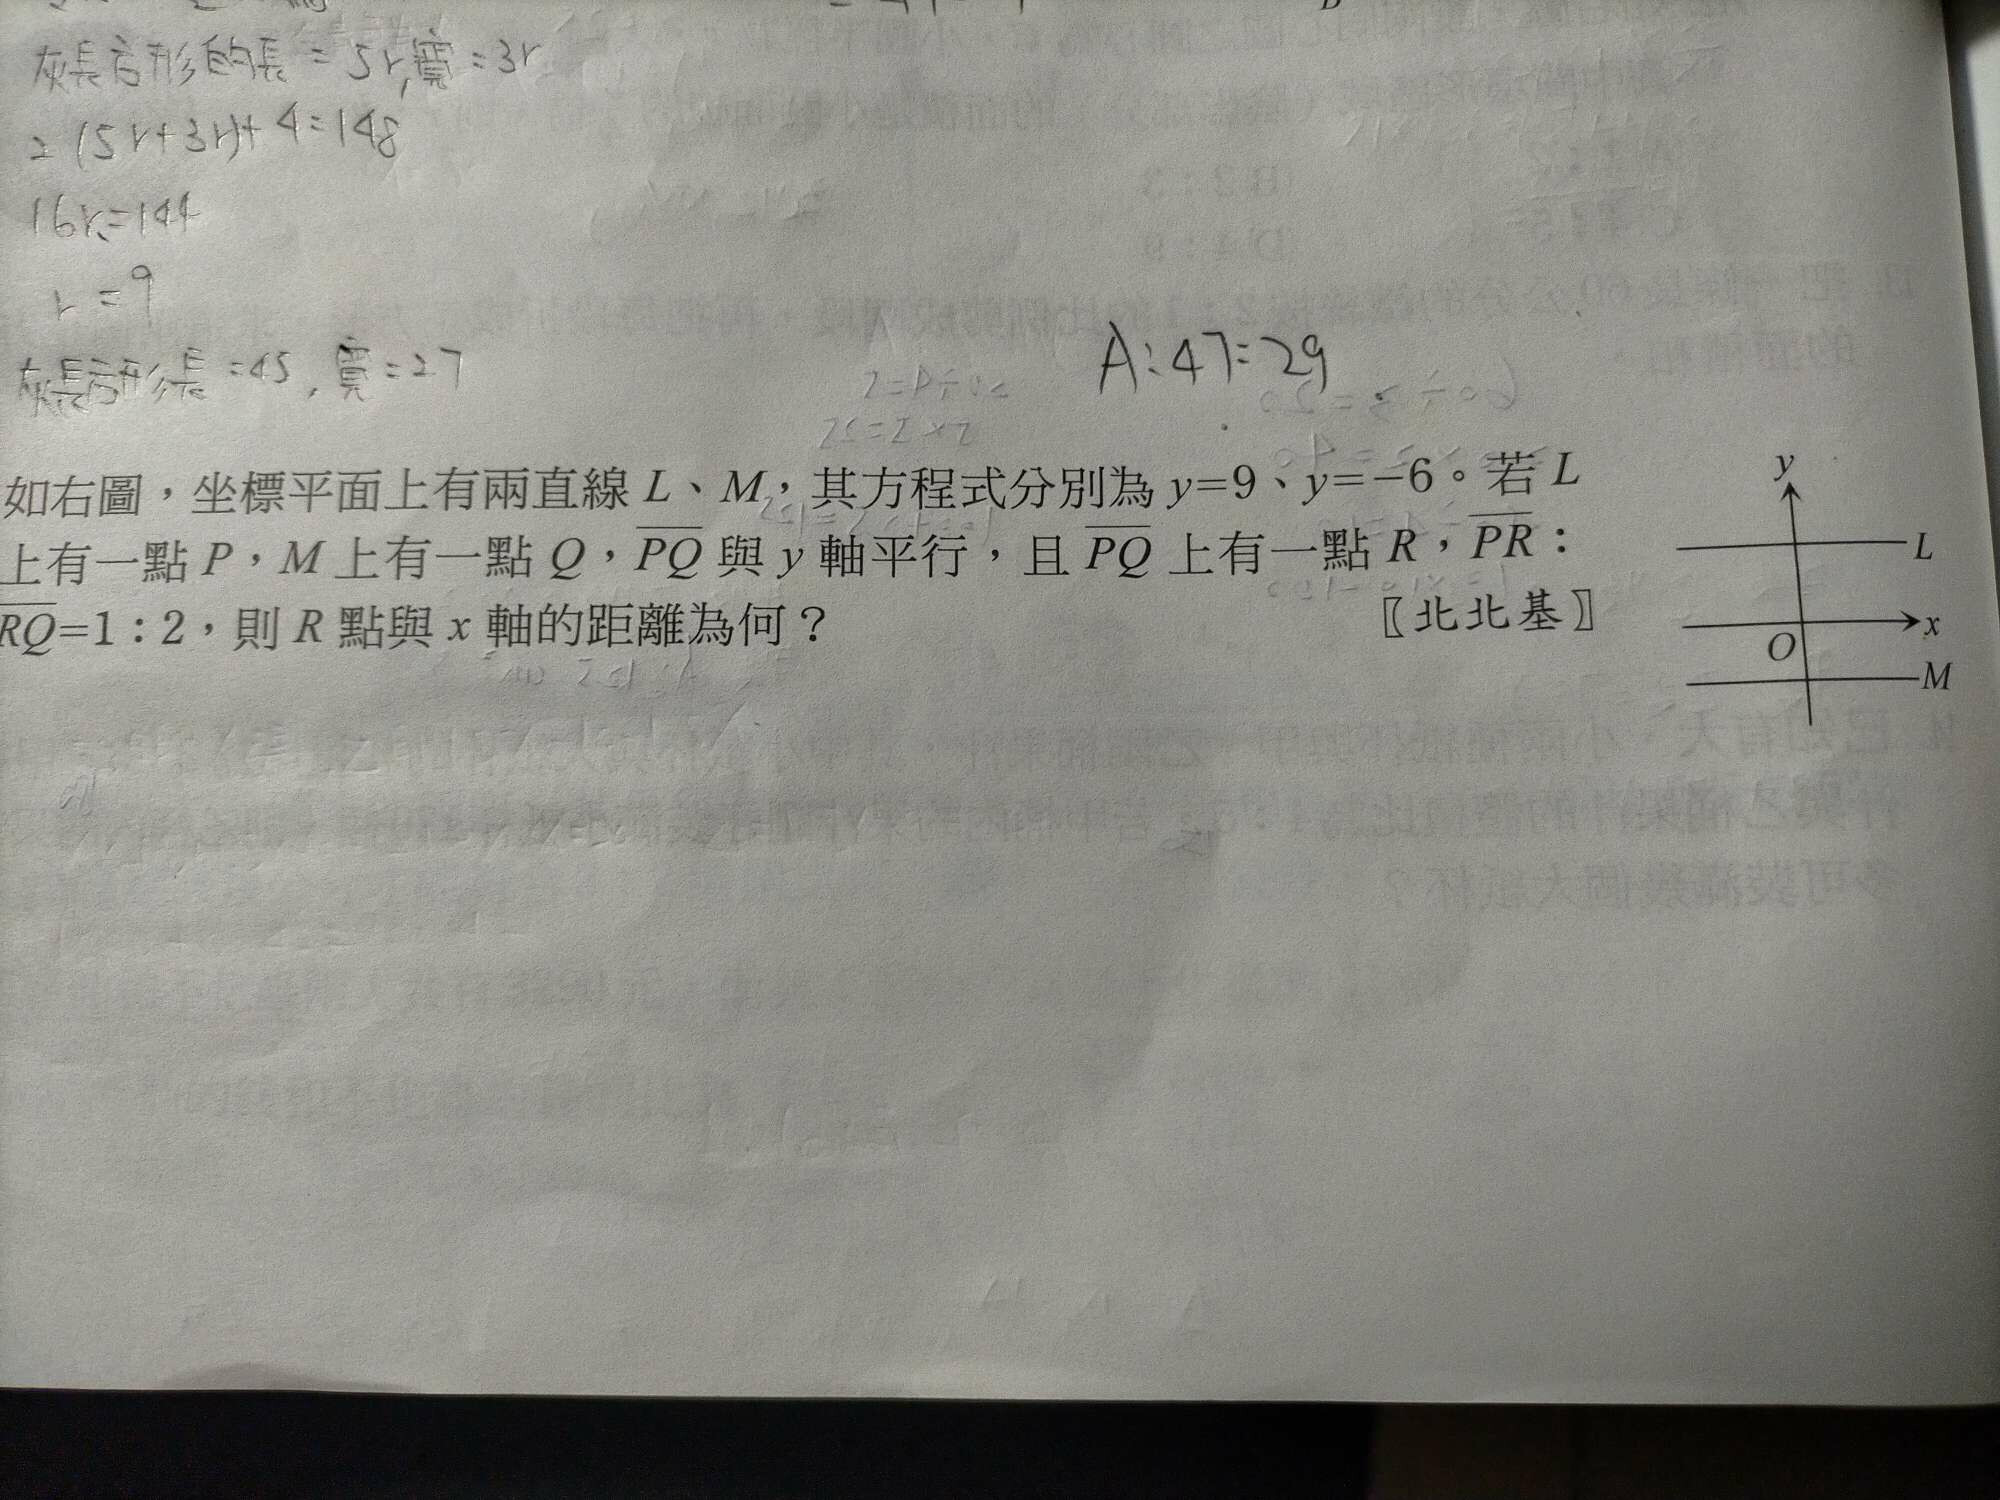 灰長方形的長=5r,寬=3r
2(5r+3r)+4=148
16r=144
r=9
灰長方形長=45,寬=27
A:47:29
如右圖,坐標平面上有兩直線 L、M,其方程式分別為 y=9、y=−6。若 L
上有一點 P,M 上有一點 Q,PQ 與 y 軸平行,且 PQ 上有一點 R,PR:
RQ=1:2,則 R 點與 x 軸的距離為何?
〖北北基〗
y
L
x
O
M